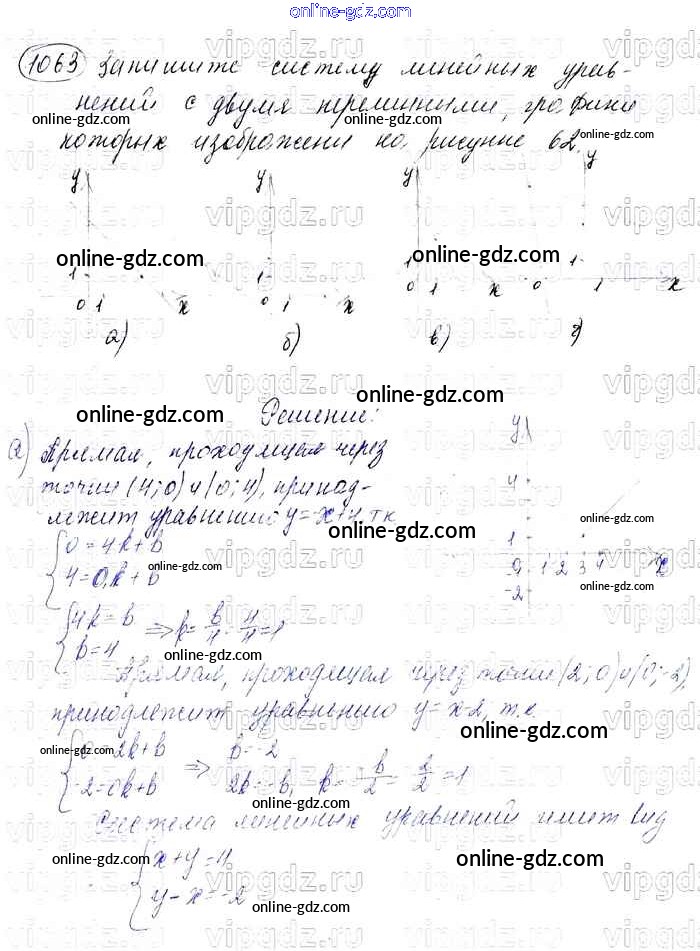 online-gdz.com
1063 Запишите систему линейных урав-
нений с двумя переменными, графики
которых изображены на рисунке 62.
y y y y
1 1 1 1
0 1 x 0 1 x 0 1 x 0 1 x
а) б) в) г)
Решение:
а) Прямая, проходящая через
точки (4; 0) и (0; 4), принад-
лежит уравнению y = x + 4 т.к
0 = 4k + b
4 = 0k + b
y
4
1
0 1 2 3 4 x
-2
4k = b
b = 4
⇒ k = b/4 = 4/4 = 1
Прямая, проходящая через точки (2; 0) и (0; -2),
принадлежит уравнению y = x - 2, т.к.
0 = 2k + b
-2 = 0k + b
⇒ b = -2
2k = -b, k = -b/2 = 2/2 = 1
Система линейных уравнений имеет вид
x + y = 4
y - x = -2
online-gdz.com
vipgdz.ru